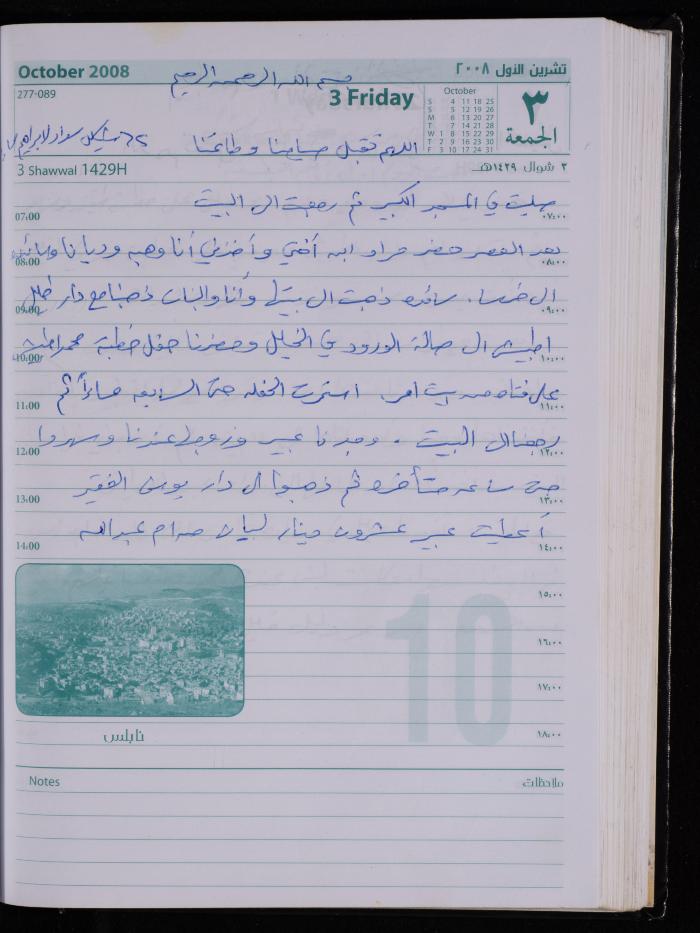 October 2008
تشرين الأول ٢٠٠٨
بسم الله الرحمن الرحيم
277-089
3 Friday
October
S 4 11 18 25
S 5 12 19 26
M 6 13 20 27
T 7 14 21 28
W 1 8 15 22 29
T 2 9 16 23 30
F 3 10 17 24 31
٣
الجمعة
اللهم تقبل صيامنا وطاعتنا
3 Shawwal 1429H
٣ شوال ١٤٢٩هـ
صليت في المسجد الكبير ثم رجعت الى البيت
07:00 ٠٧:٠٠
بعد العصر حضر مراد ابن أختي وأخذني أنا وهبه وديانا
08:00 ٠٨:٠٠
ذهبت الى بيتها وأنا والبنات ذهبنا مع دار خليل
09:00 ٠٩:٠٠
اطبيش الى صالة الورود في الخليل وحضرنا حفل خطبة محمد اطبيش
10:00 ١٠:٠٠
على فتاه من بيت امر. استمرت الحفله حتى السابعه مساءاً ثم
11:00 ١١:٠٠
رجعنا الى البيت. وجدنا عبير وزوجها عندنا وسهروا
12:00 ١٢:٠٠
حتى ساعه متأخره ثم ذهبوا الى دار يونس الفقير
13:00 ١٣:٠٠
أعطيت عبير عشرون دينار لبيان مرام عبدالله
14:00 ١٤:٠٠
١٥:٠٠
١٦:٠٠
10
١٧:٠٠
نابلس
١٨:٠٠
Notes
ملاحظات